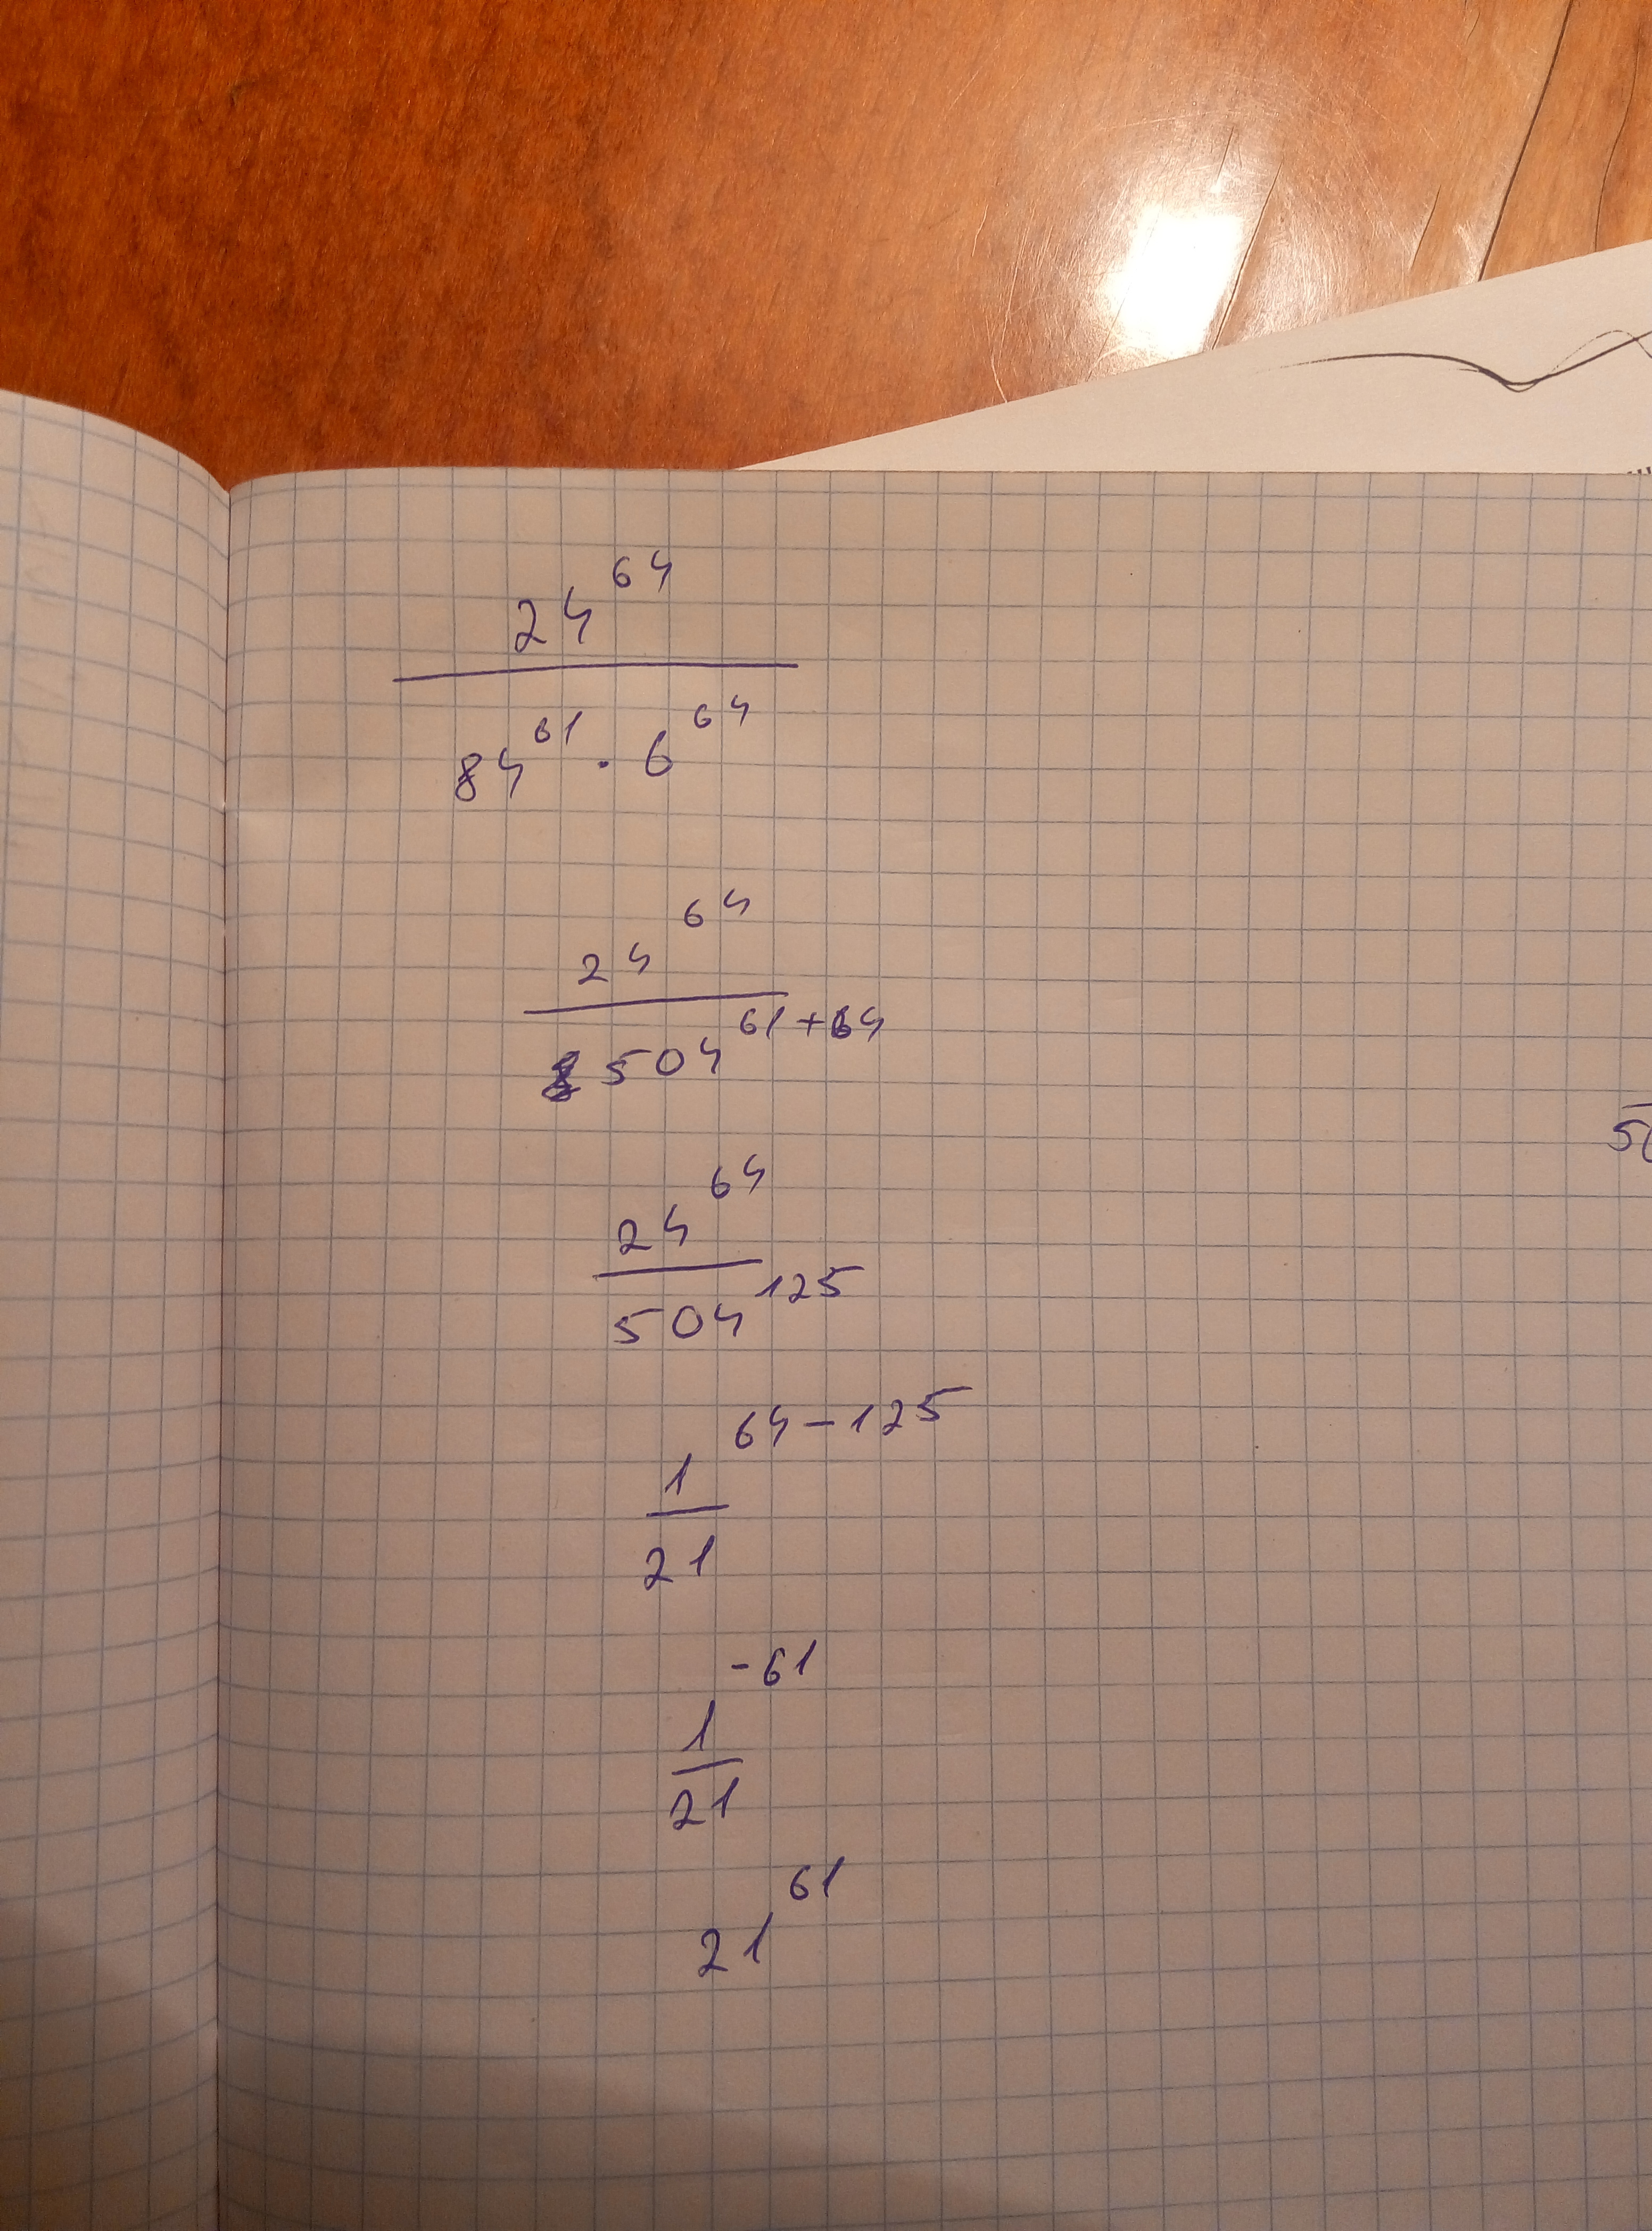 24^64
84^61 · 6^64
24^64
504^61+64
24^64
504^125
1^64-125
21
1^-61
21
21^61